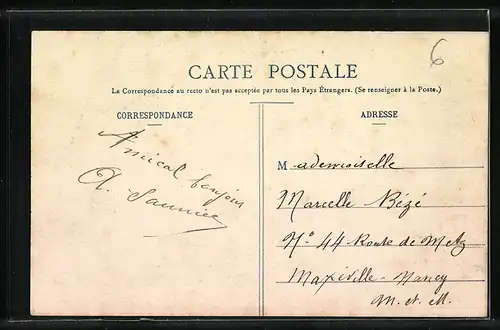 6
CARTE POSTALE
La Correspondance au recto n'est pas acceptée par tous les Pays Étrangers. (Se renseigner à la Poste.)
CORRESPONDANCE
Amical bonjour
A. Saunier
ADRESSE
Mademoiselle
Marcelle Bézé
No 44 Route de Metz
Maxéville-Nancy
M. et M.